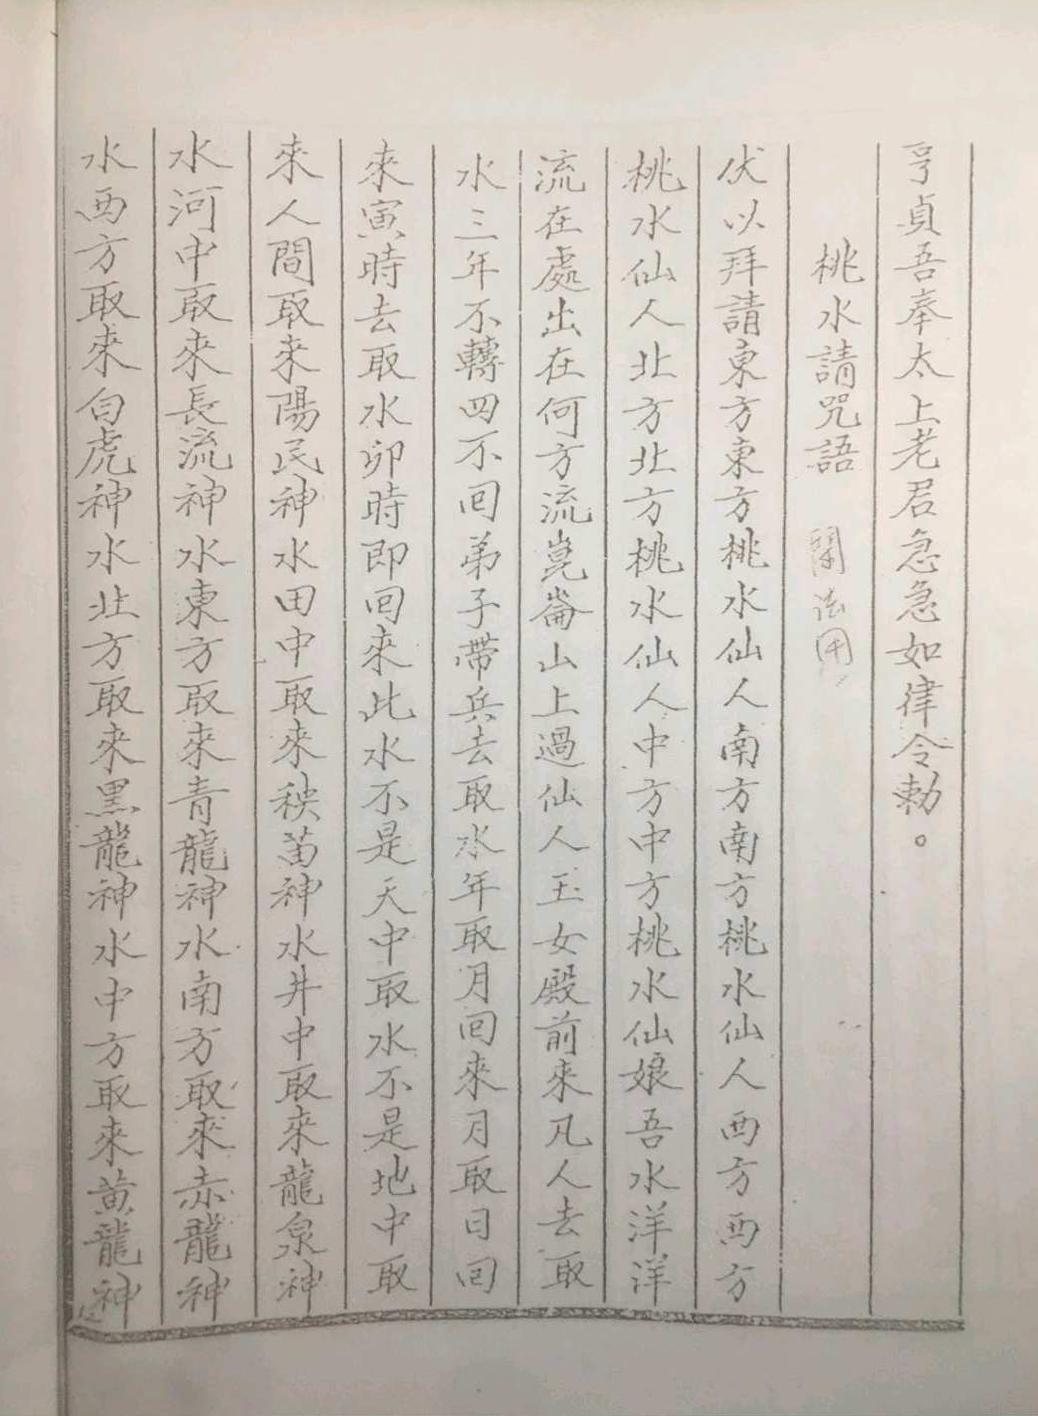 亨貞吾奉太上老君急急如律令勅。
桃水請咒語 法用
伏以拜請東方東方桃水仙人南方南方桃水仙人西方西方
桃水仙人北方北方桃水仙人中方中方桃水仙娘吾水洋洋
流在處出在何方流崑崙山上過仙人玉女殿前來凡人去取
水三年不轉四不回弟子帶兵去取水年取月回來月取日回
來寅時去取水卯時即回來此水不是天中取水不是地中取
來人間取來陽民神水田中取來秧苗神水井中取來龍泉神
水河中取來長流神水東方取來青龍神水南方取來赤龍神
水西方取來白虎神水北方取來黑龍神水中方取來黃龍神